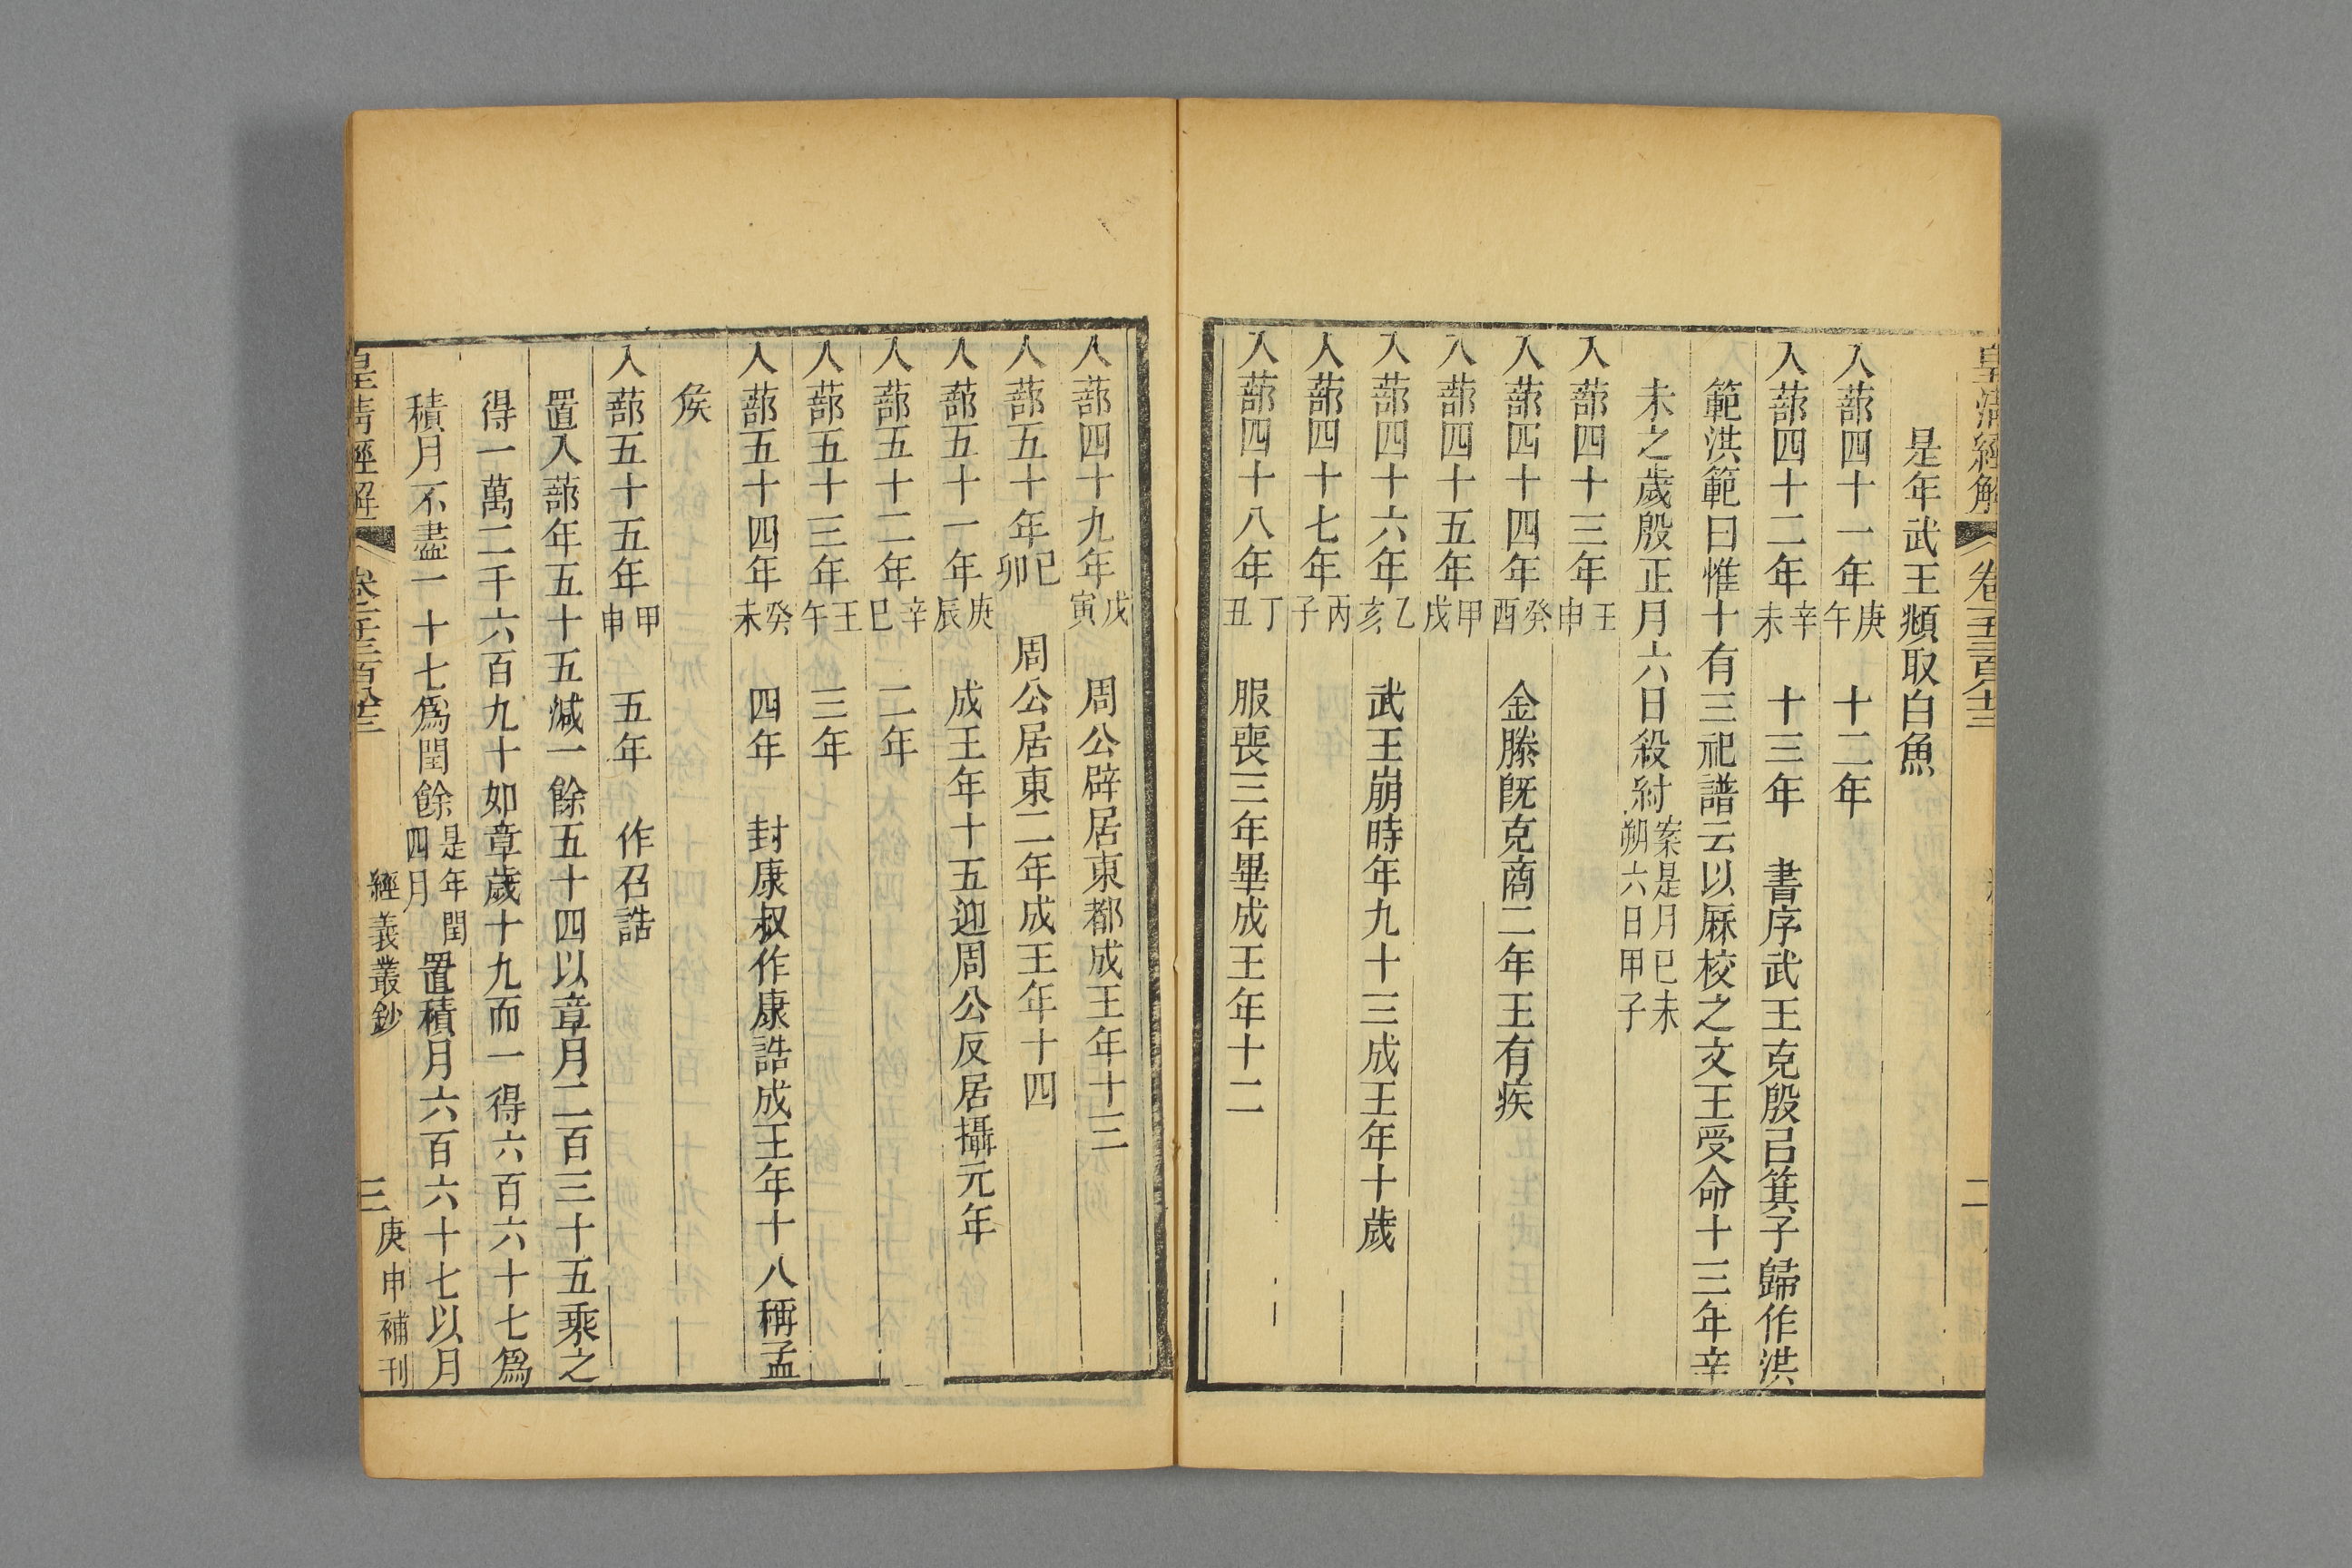 皇清經解
卷一千三百八十三
二
是年武王頫取白魚
入蔀四十一年庚午　十二年
入蔀四十二年辛未　十三年　書序武王克殷㠯箕子歸作洪
範洪範曰惟十有三祀譜云以厤校之文王受命十三年辛
未之歲殷正月六日殺紂案是月己未朔六日甲子
入蔀四十三年壬申
入蔀四十四年癸酉　金縢旣克商二年王有疾
入蔀四十五年甲戌
入蔀四十六年乙亥　武王崩時年九十三成王年十歲
入蔀四十七年丙子
入蔀四十八年丁丑　服喪三年畢成王年十二
入蔀四十九年戊寅　周公辟居東都成王年十三
入蔀五十年己卯　周公居東二年成王年十四
入蔀五十一年庚辰　成王年十五迎周公反居攝元年
入蔀五十二年辛巳　二年
入蔀五十三年壬午　三年
入蔀五十四年癸未　四年　封康叔作康誥成王年十八稱孟
矦
入蔀五十五年甲申　五年　作召誥
置入蔀年五十五減一餘五十四以章月二百三十五乘之
得一萬二千六百九十如章歲十九而一得六百六十七爲
積月不盡一十七爲閏餘是年閏四月置積月六百六十七以月
皇清經解
卷一千三百八十三
經義叢鈔
三
庚申補刊